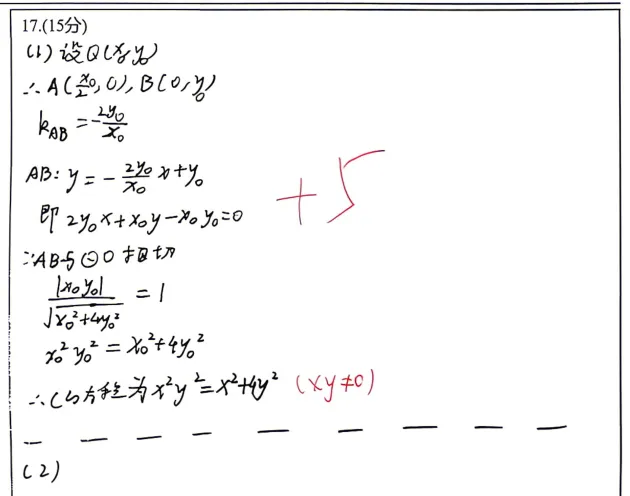 17.(15分)
(1) 设Q(x₀,y₀)
∴A(x₀/2,0),B(0,y₀)
k_AB = -2y₀/x₀
AB: y = - 2y₀/x₀ x+y₀
即 2y₀x+x₀y-x₀y₀=0
+5
∵AB与⊙O相切
|x₀y₀|/√(x₀²+4y₀²) = 1
x₀²y₀² = x₀²+4y₀²
∴C的方程为x²y²=x²+4y² (xy≠0)
(2)